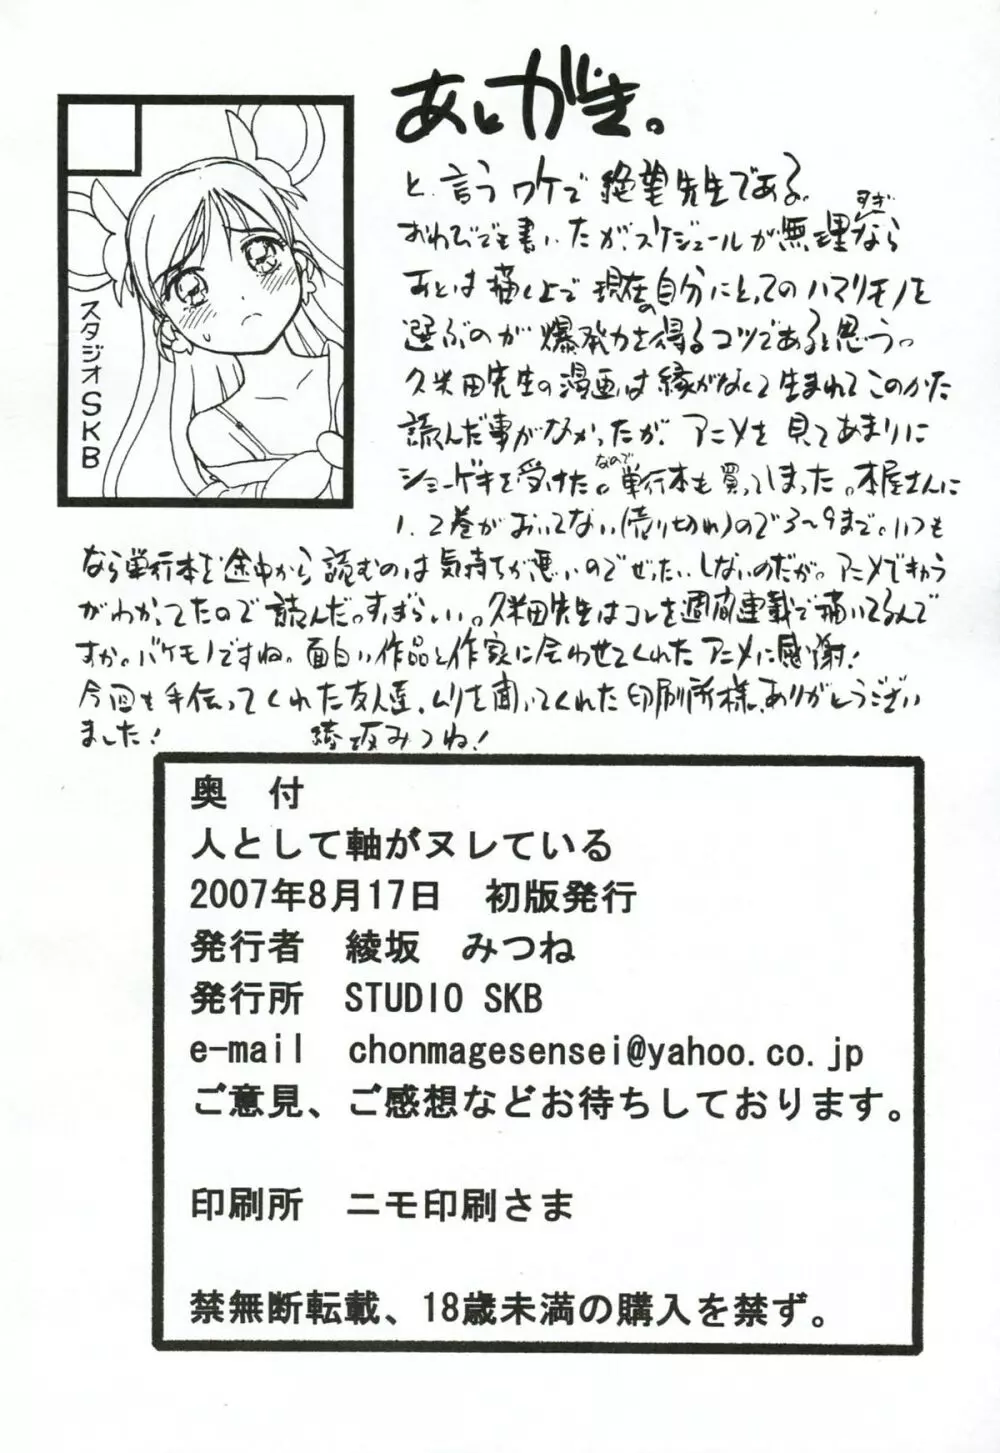 あとがき。
と言うワケで絶望先生である。
おわびでも書いたが、スケジュールが無理すぎなら
あとは描く上で現在の自分にとってのハマリモノを
選ぶのが爆発力を得るコツであると思う。
久米田先生の漫画は縁がなくて生まれてこのかた
読んだ事がなかったが、アニメを見てあまりに
ショーゲキを受けた。なので単行本も買ってしまった。本屋さんに
1、2巻がおいてない(売り切れ)ので3〜9まで。いつも
なら単行本を途中から読むのは気持ちが悪いのでぜったいしないのだが。アニメできょう
がわかってたので読んだっすばらしい。久米田先生はコレを週間連載で描いてるんで
すか。バケモノですね。面白い作品と作家に会わせてくれたアニメに感謝!
今回も手伝ってくれた友人達、ムリを聞いてくれた印刷所様、ありがとうござい
ました! 綾坂みつね!
スタジオSKB
奥 付
人として軸がヌレている
2007年8月17日 初版発行
発行者 綾坂 みつね
発行所 STUDIO SKB
e-mail chonmagesensei@yahoo.co.jp
ご意見、ご感想などお待ちしております。
印刷所 ニモ印刷さま
禁無断転載、18歳未満の購入を禁ず。